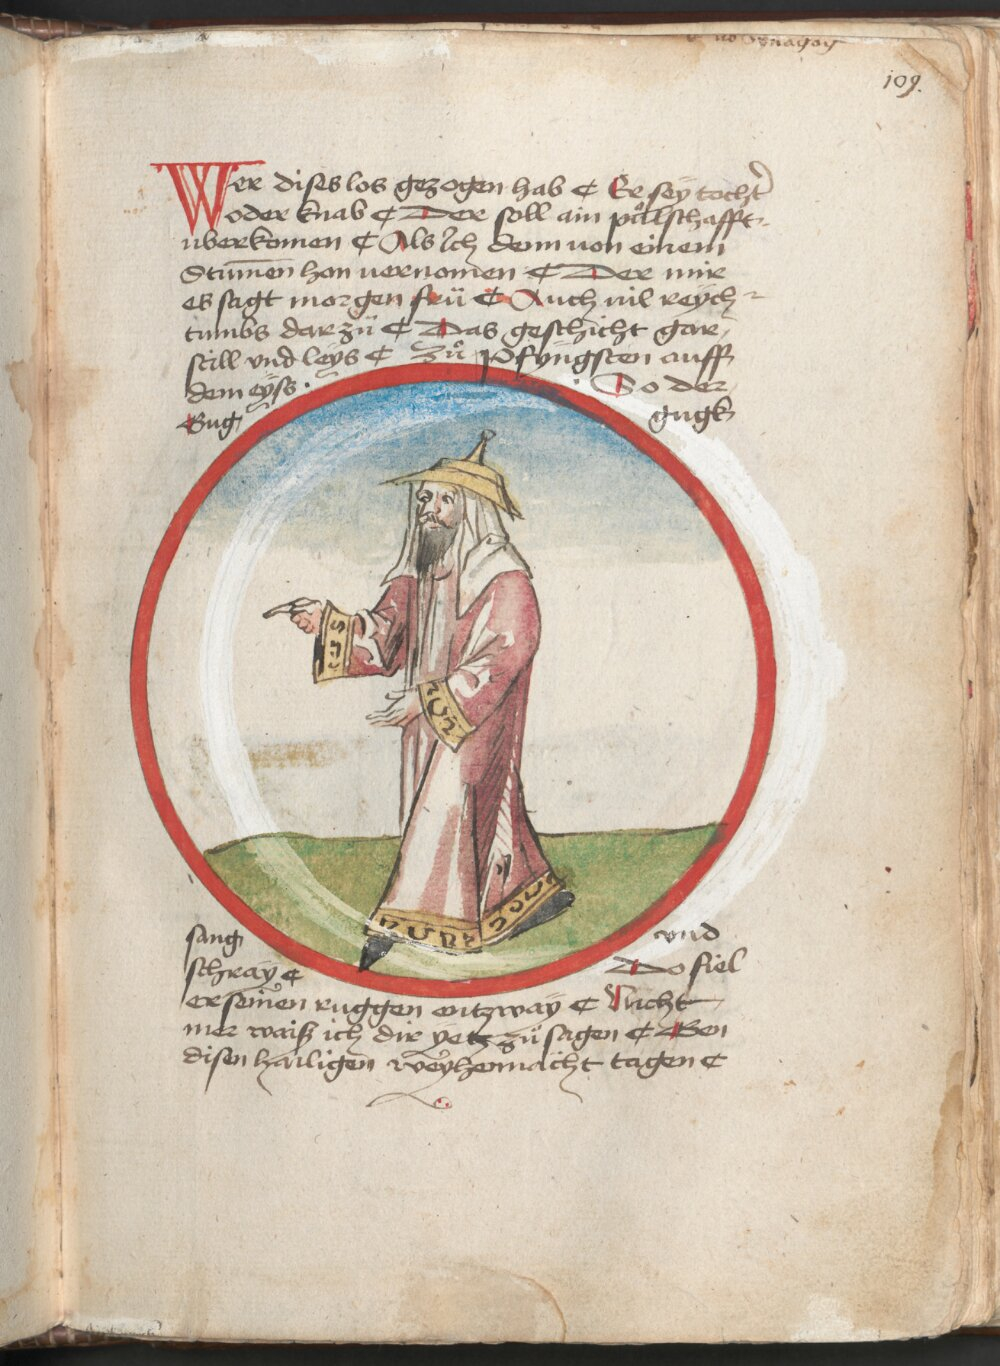 109.
Wer dises los gezogen hab ¢ Er sey tocht
oder knab ¢ Der soll ain půlschafft
uberkomen ¢ Als Ich denn von einem
Stumen hon vernomen ¢ Der mir
es sagt morgen frü ¢ Auch vil reych-
tumbs dar zü ¢ Das geschicht gar
still vnd leys ¢ Zů pfyngsten auff
dem eyss. So der
Gug gugk
sang vnd
schray ¢ Do fiel
er seinen ruggen entzway ¢ Nicht
mer waiß ich dir yetz zü sagen ¢ Ben
disen hailigen weyhennacht tagen ¢